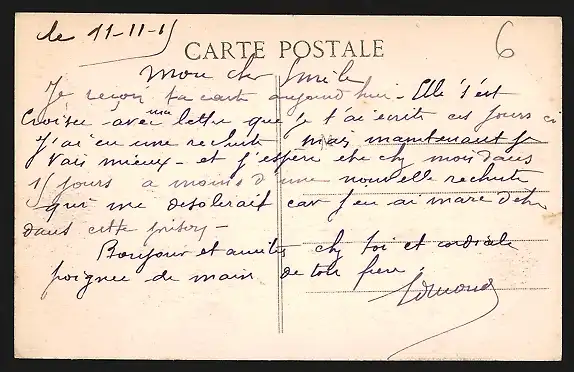 le 11-11-15
6
CARTE POSTALE
Mon cher Emile
Je reçois ta carte aujourd'hui - Elle s'est
croisée avec une lettre que je t'ai écrite ces jours ci
J'ai eu une rechute mais maintenant je
vais mieux - et j'espère etre chez moi dans
15 jours a moins d'une nouvelle rechute
qui me désolerait car j'en ai mare d'etre
dans cette prison -
Bonjour et amitiés chez toi et cordiale
poignée de main de ton frère.
Edmond